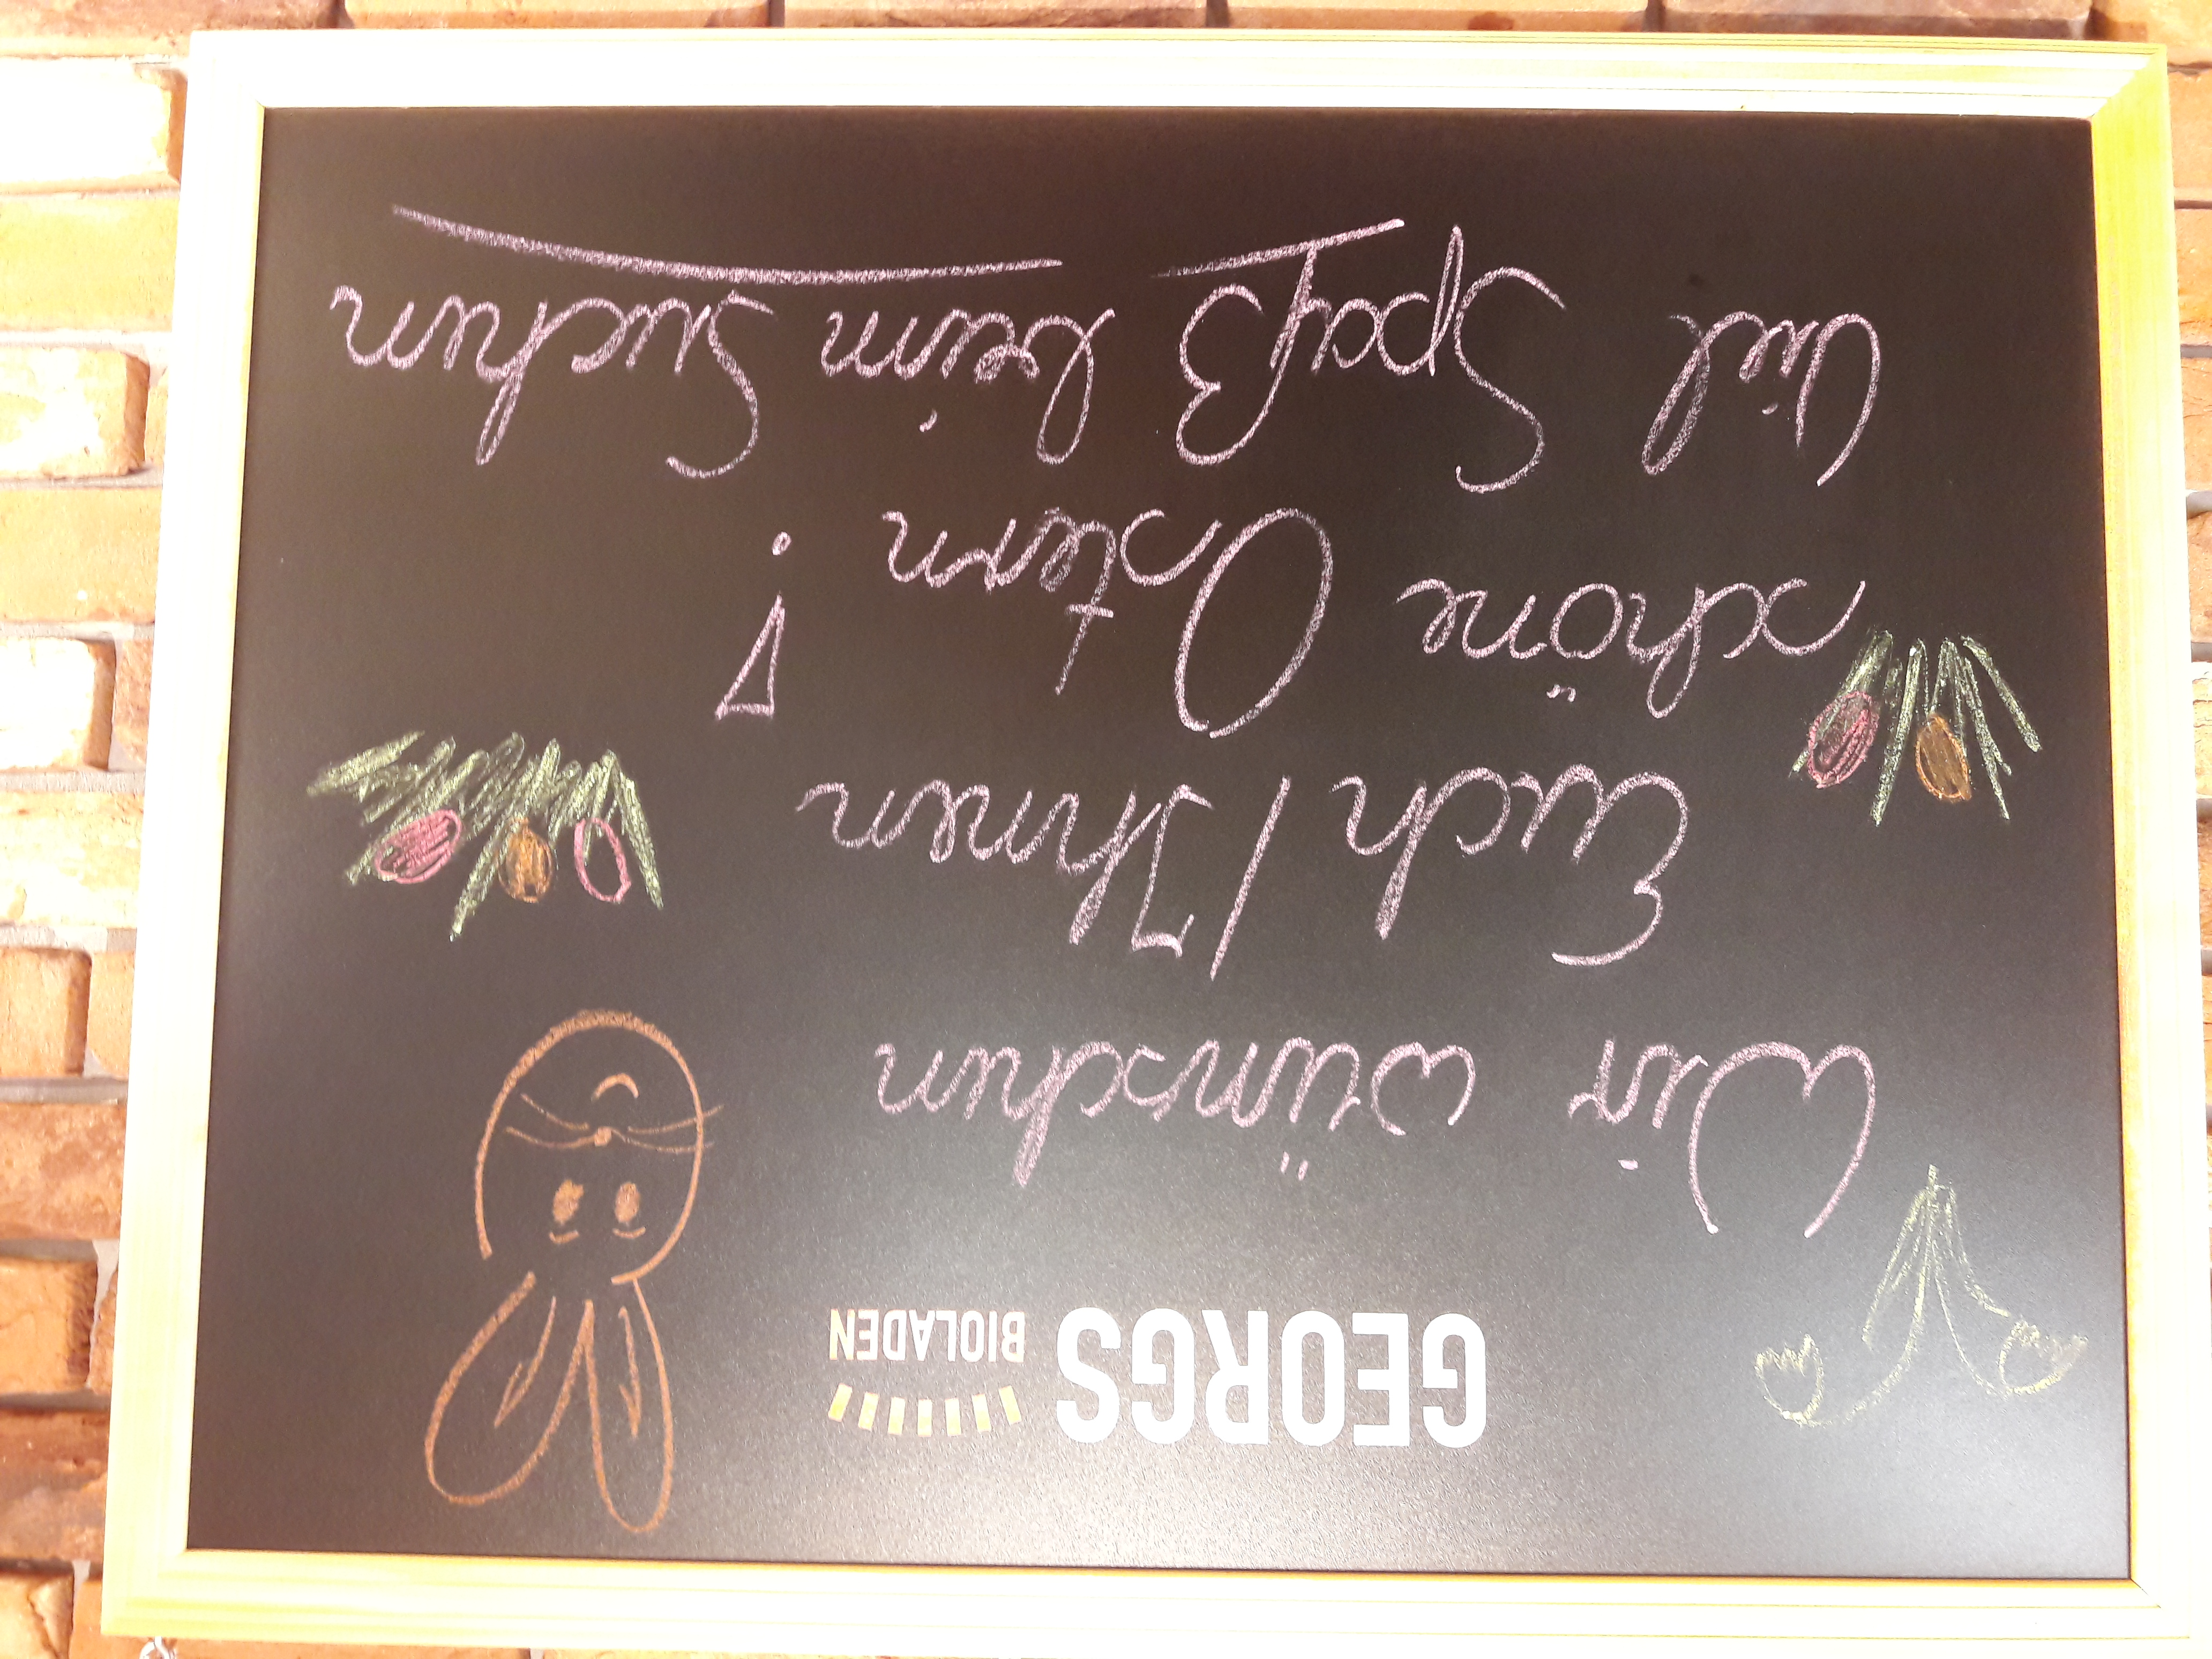 GEORGS BIOLADEN
Wir wünschen
Euch / Ihnen
schöne Ostern !
Viel Spaß beim Suchen